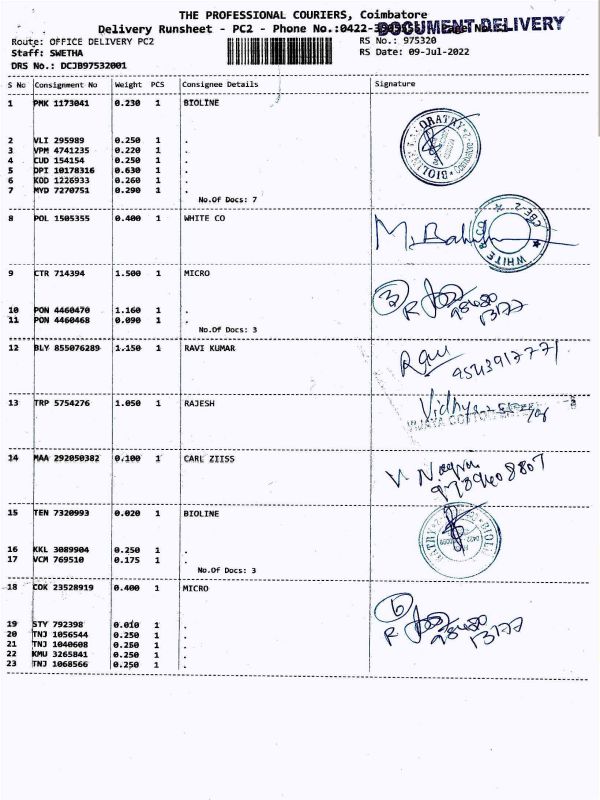 THE PROFESSIONAL COURIERS, Coimbatore
Delivery Runsheet - PC2 - Phone No.:0422-
DOCUMENT DELIVERY
Route: OFFICE DELIVERY PC2 RS No.: 975320
Staff: SWETHA RS Date: 09-Jul-2022
DRS No.: DCJB97532001
S No Consignment No Weight PCS Consignee Details Signature
1 PMK 1173041 0.230 1 BIOLINE
2 VLI 295989 0.250 1 .
3 VPM 4741235 0.220 1 .
4 CUD 154154 0.250 1 .
5 DPI 10178316 0.630 1 .
6 KOD 1226933 0.260 1 .
7 MYD 7270751 0.290 1 .
No.Of Docs: 7
8 POL 1505355 0.400 1 WHITE CO
WHITE & CO
CBE 2
9 CTR 714394 1.500 1 MICRO
10 PON 4460470 1.160 1 .
11 PON 4460468 0.090 1 .
No.Of Docs: 3
12 BLY 855076289 1.150 1 RAVI KUMAR
13 TRP 5754276 1.050 1 RAJESH
Vidhya
14 MAA 292050382 0.100 1 CARL ZIISS
9789608807
15 TEN 7320993 0.020 1 BIOLINE
16 KKL 3089904 0.250 1 .
17 VCM 769510 0.175 1 .
No.Of Docs: 3
18 COK 23528919 0.400 1 MICRO
19 STY 792398 0.010 1 .
20 TNJ 1056544 0.250 1 .
21 TNJ 1040608 0.250 1 .
22 KMU 3265841 0.250 1 .
23 TNJ 1068566 0.250 1 .